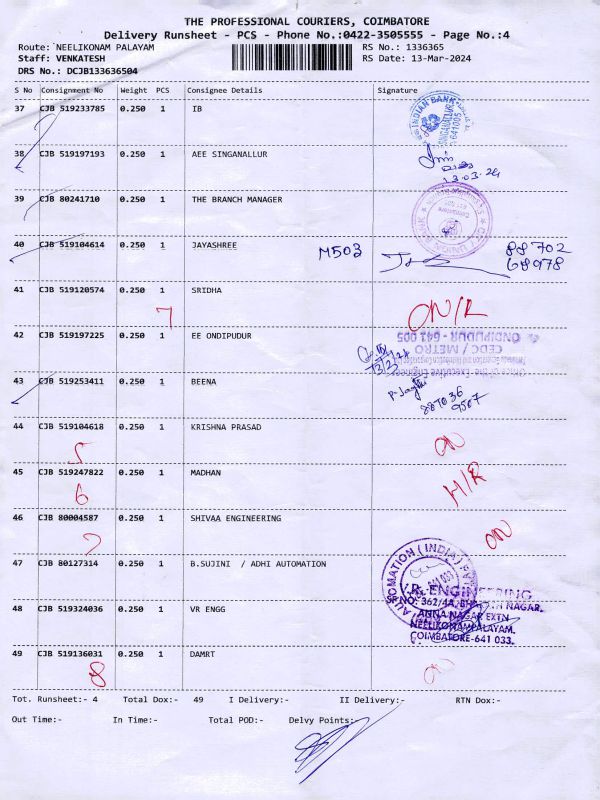 THE PROFESSIONAL COURIERS, COIMBATORE
Delivery Runsheet - PCS - Phone No.:0422-3505555 - Page No.:4
Route: NEELIKONAM PALAYAM RS No.: 1336365
Staff: VENKATESH RS Date: 13-Mar-2024
DRS No.: DCJB133636504
S No Consignment No Weight PCS Consignee Details Signature
37 CJB 519233785 0.250 1 IB
INDIAN BANK
SINGANALLUR
641005
38 CJB 519197193 0.250 1 AEE SINGANALLUR
13.03.24
39 CJB 80241710 0.250 1 THE BRANCH MANAGER
40 CJB 519104614 0.250 1 JAYASHREE M503 88702
68978
41 CJB 519120574 0.250 1 SRIDHA
7 ON/R
42 CJB 519197225 0.250 1 EE ONDIPUDUR
ONDIPUDUR - 641 005
CEDC / METRO
43 CJB 519253411 0.250 1 BEENA
44 CJB 519104618 0.250 1 KRISHNA PRASAD ON
5
45 CJB 519247822 0.250 1 MADHAN H/R
6
46 CJB 80004587 0.250 1 SHIVAA ENGINEERING ON
7
47 CJB 80127314 0.250 1 B.SUJINI / ADHI AUTOMATION
AUTOMATION (INDIA)
48 CJB 519324036 0.250 1 VR ENGG
V.R. ENGINEERING
SF NO: 362/4A, NAGAR.
ANNA NAGAR EXTN
NEELIKONAMPALAYAM.
COIMBATORE-641 033.
49 CJB 519136031 0.250 1 DAMRT ON
8
Tot. Runsheet:- 4 Total Dox:- 49 I Delivery:- II Delivery:- RTN Dox:-
Out Time:- In Time:- Total POD:- Delvy Points:-